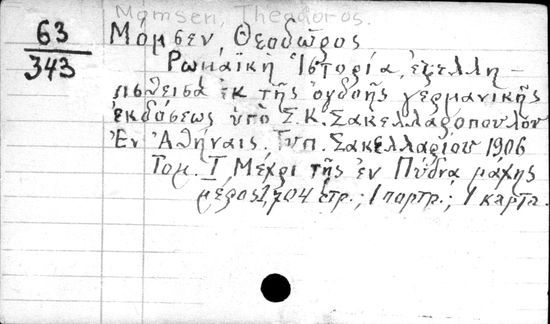 Momsen, Theodoros.
63 Μόμσεν, Θεοδῶρος
343 Ρωμαϊκὴ Ἱστορία, ἐξελλη-
νισθεῖσα ἐκ τῆς ὀγδοῆς γερμανικῆς
ἐκδόσεως ὑπὸ Σ. Κ. Σακελλαροπούλου
Ἐν Ἀθήναις. Τυπ. Σακελλαρίου 1906
Τομ. I, Μέχρι τῆς ἐν Πύδνᾳ μάχης
μέρος 2, 704 στρ.; 1 πορτρ.; 1 καρτα.